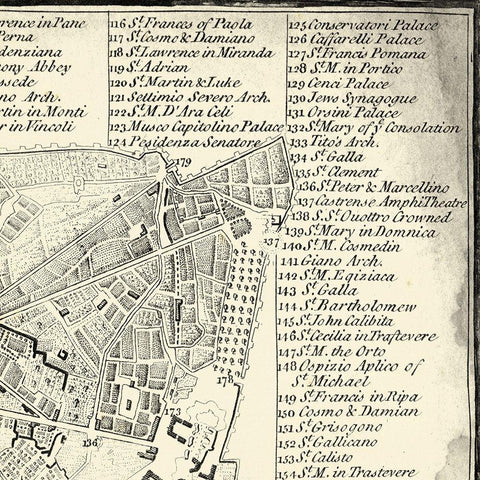 rence in Pane
Perna
denziana
ony Abbey
ssede
no Arch.
rtin in Monti
r in Vincoli
116 St. Frances of Paola
117 St. Cosmo & Damiano
118 St. Lawrence in Miranda
119 St. Adrian
120 St. Martin & Luke
121 Settimio Severo Arch.
122 St. M. D'Ara Celi
123 Museo Capitolino Palace
124 Pesidenza Senatore
125 Conservatori Palace
126 Caffarelli Palace
127 St. Francis Pomana
128 St. M. in Portico
129 Cenci Palace
130 Jews Synagogue
131 Orsini Palace
132 St. Mary of ye Consolation
133 Tito's Arch.
134 St. Galla
135 St. Clement
136 St. Peter & Marcellino
137 Castrense AmphiTheatre
138 S.St. Quottro Crowned
139 St. Mary in Domnica
140 St. M. Cosmedin
141 Giano Arch.
142 St. M. Egiziaca
143 St. Galla
144 St. Bartholomew
145 St. John Calibita
146 St. Cecilia in Trastevere
147 St. M. the Orto
148 Ospizio Aplico of
St. Michael
149 St. Francis in Ripa
150 Cosmo & Damian
151 St. Grisogono
152 St. Gallicano
153 St. Calisto
154 St. M. in Trastevere
179
137
178
173
136